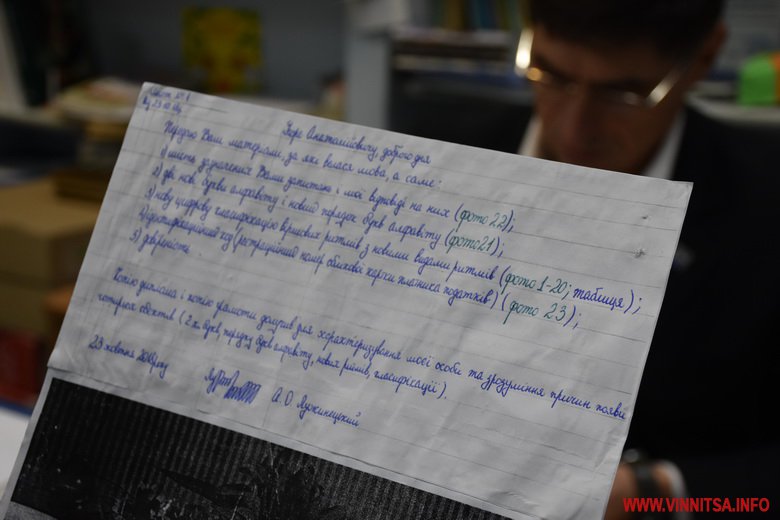 Лист № 1
Юре Анатолійовичу, доброго дня
Передаю Вам матеріали, за які велася мова, а саме:
1) шість зазначених Вами запитань і мої відповіді на них (фото 22);
2) дві нові букви алфавіту і новий порядок букв алфавіту (фото 21);
3) нову цифрову класифікацію віршових ритмів з новими видами ритмів (фото 1-20; таблиця);
4) ідентифікаційний код (реєстраційний номер облікової картки платника податків) (фото 23);
5) дві роботи
Копію диплома і копію грамоти долучив для характеризування моєї особи та зрозуміння причин появи
чотирьох обєктів (2-х букв, порядку букв алфавіту, нових ритмів, класифікації).
23 жовтня року
А. О. Лужинецький
WWW.VINNITSA.INFO